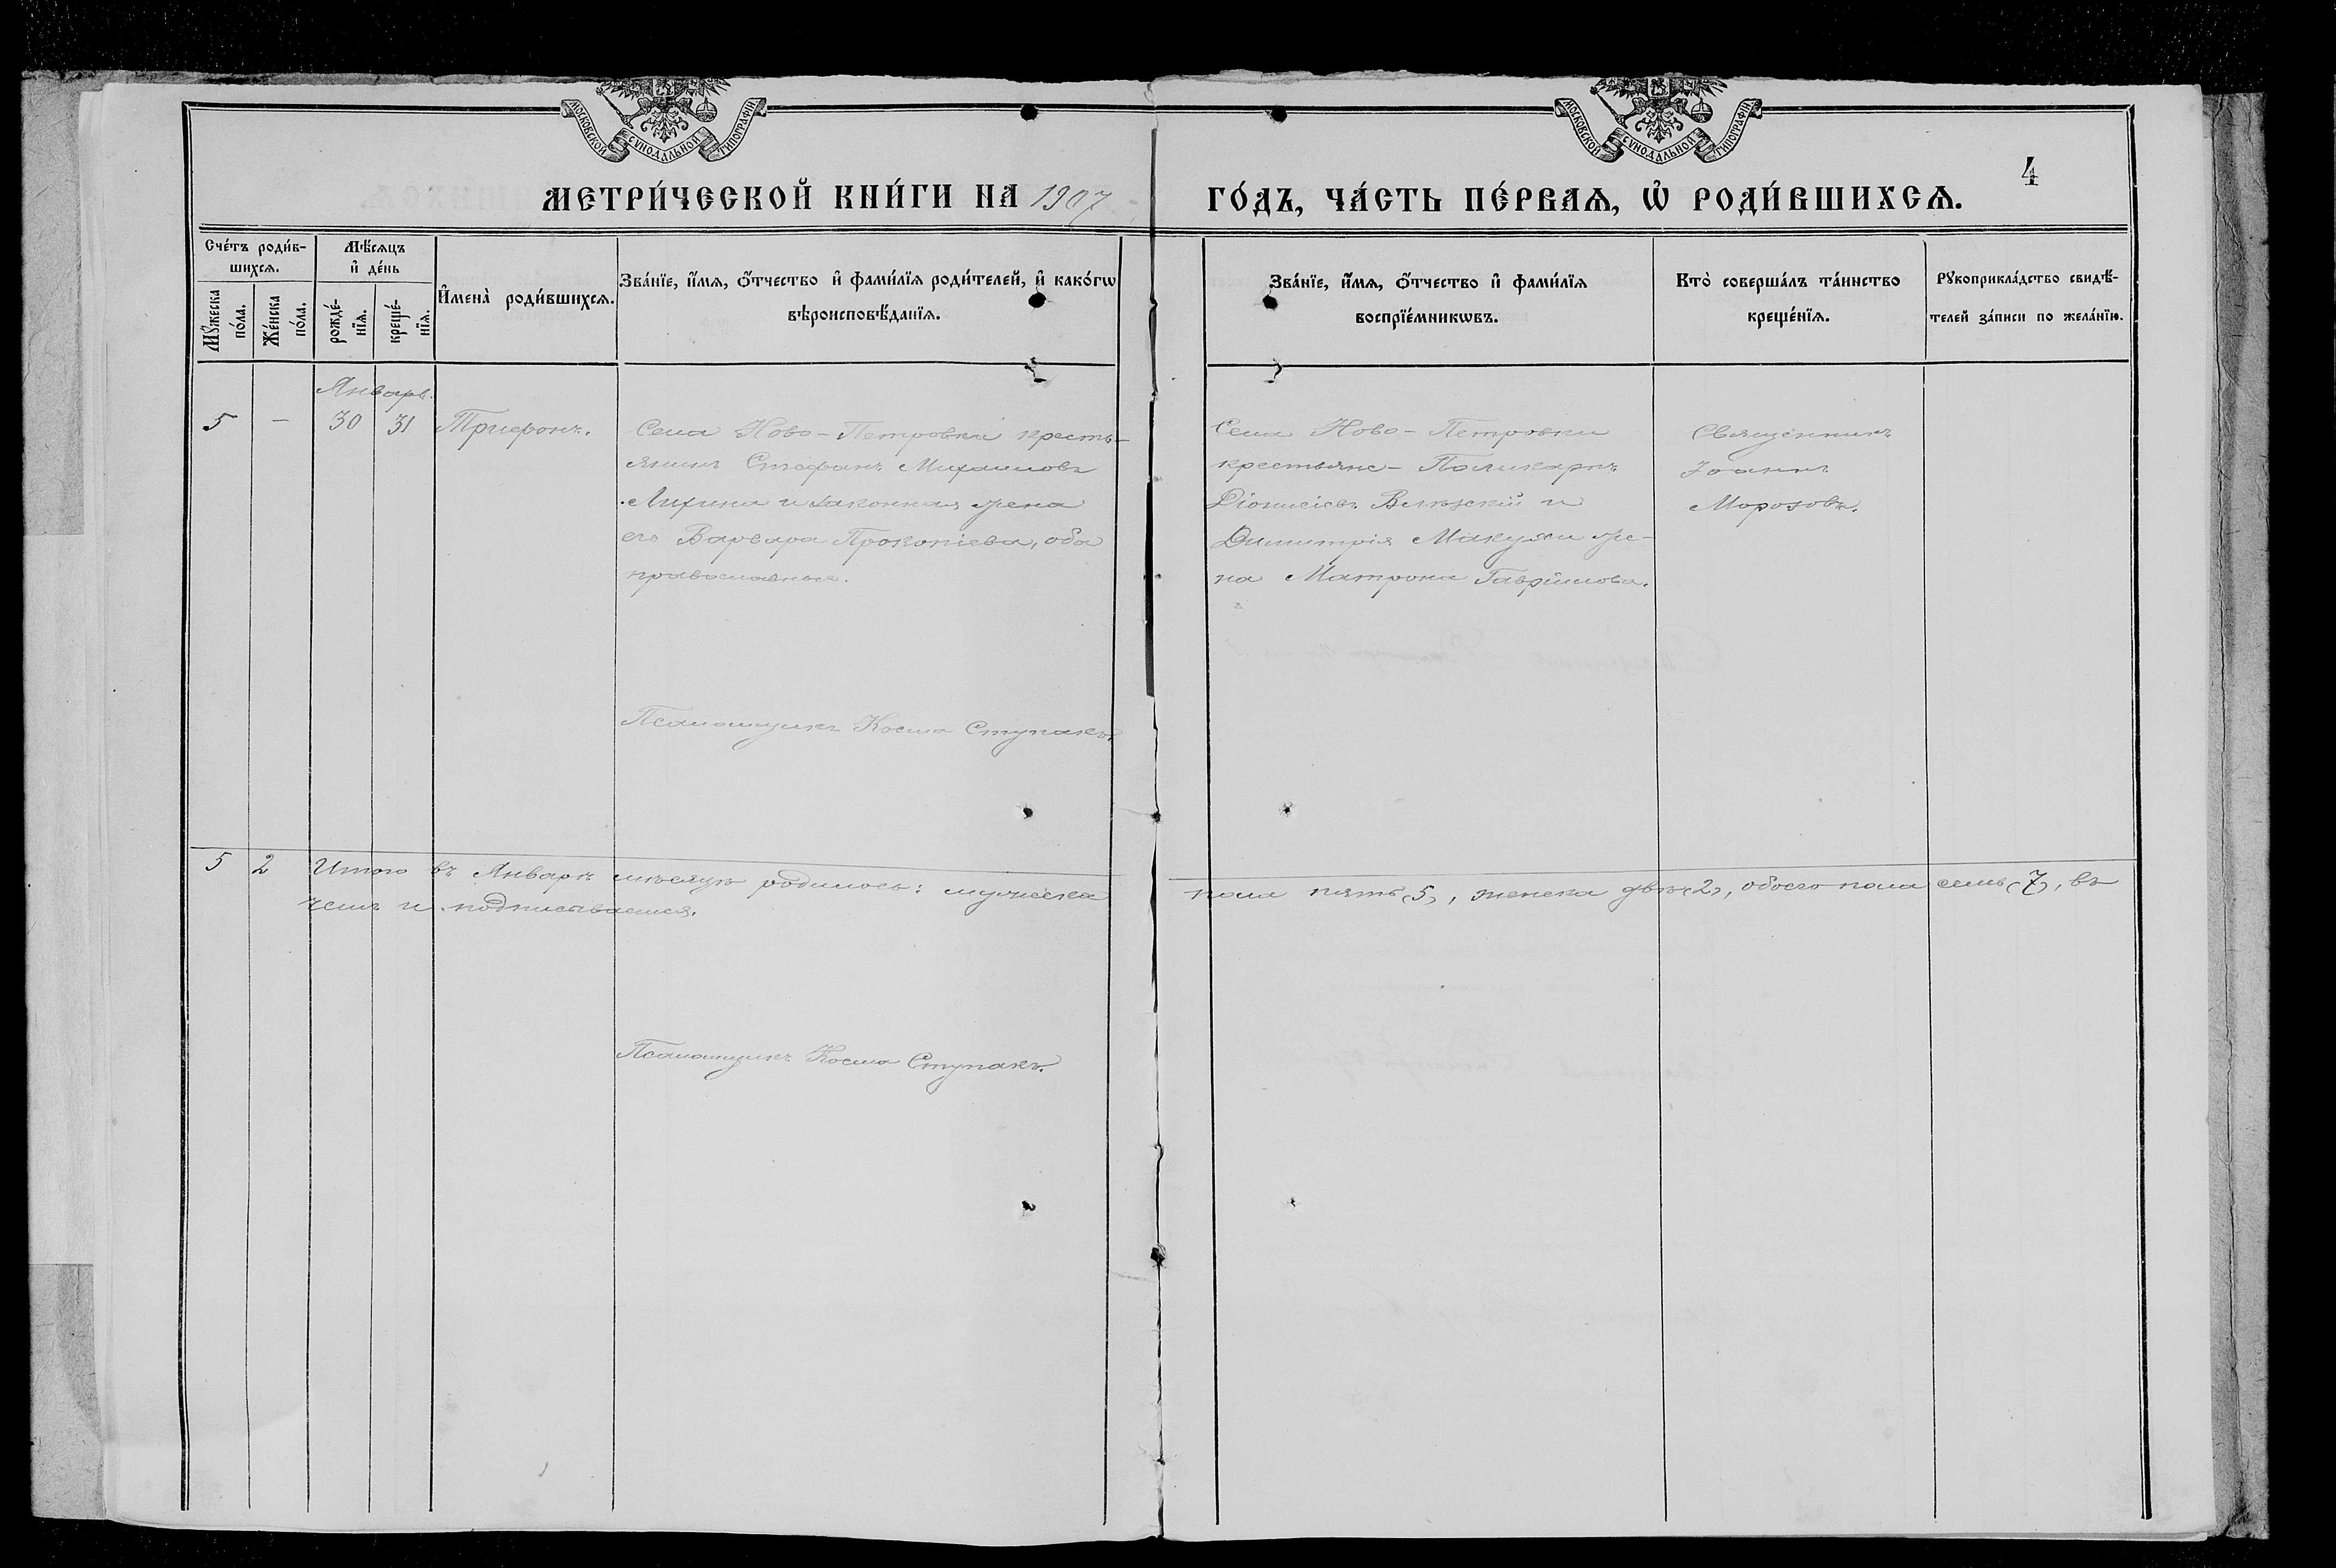 МОСКОВСКОЙ СУНОДАЛЬНОЙ ТИПОГРАФІИ
МОСКОВСКОЙ СУНОДАЛЬНОЙ ТИПОГРАФІИ
4
МЕТРИ́ЧЕСКОЙ КНИ́ГИ НА 1907
ГО́ДЪ, ЧА́СТЬ ПЕ́РВАѦ, Ѡ҆ РОДИ́ВШИХСѦ.
Сче́тъ роди́в-
шихсѧ.
Мꙋ́жеска
по́ла.
Же́нска
по́ла.
Мѣ́сѧцъ
и҆ де́нь
рожде́-
нїѧ.
креще́-
нїѧ.
И҆мена̀ роди́вшихсѧ.
Зва́нїе, и҆́мѧ, ѻ҆́тчество и҆ фами́лїѧ роди́телей, и҆ како́гѡ
вѣроисповѣ́данїѧ.
Зва́нїе, и҆́мѧ, ѻ҆́тчество и҆ фами́лїѧ
воспрїе́мникѡвъ.
Кто̀ соверша́лъ та́инство
креще́нїѧ.
Рꙋкоприкла́дство свидѣ́-
телей за́писи по жела́нїю.
Январь.
5 — 30 31 Трифонъ.
Села Ново-Петровки кресть-
янинъ Стефанъ Михаиловъ
Лихина и законная жена
его Варвара Прокопіева, оба
православные.
Села Ново-Петровки
крестьяне- Поликарпъ
Діонисіевъ и
Димитрія Макухи же-
на Матрона Гавріилова.
Священникъ
Іоаннъ
Морозовъ.
Псаломщикъ Косма Ступакъ.
5 2 Итого въ Январѣ мѣсяцѣ родилось: мужеска пола пять (5), женска двѣ (2), обоего пола семь (7), въ
чемъ и подписываемся.
Псаломщикъ Косма Ступакъ.